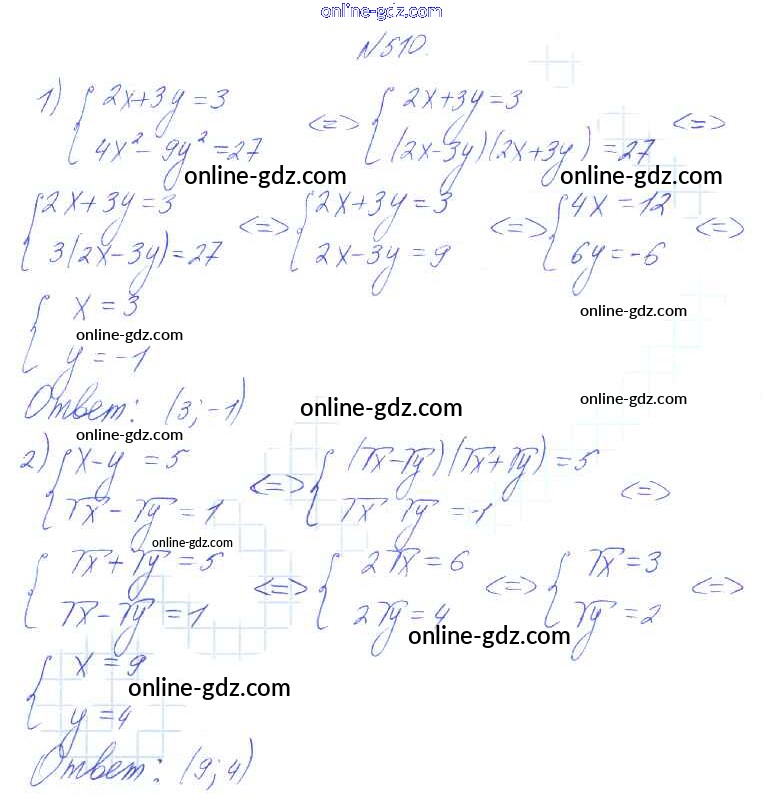 online-gdz.com
№510.
1) { 2x+3y=3 <=> { 2x+3y=3 <=>
4x²-9y²=27 (2x-3y)(2x+3y)=27
online-gdz.com online-gdz.com
{ 2x+3y=3 <=> { 2x+3y=3 <=> { 4x=12 <=>
3(2x-3y)=27 2x-3y=9 6y=-6
{ x=3
online-gdz.com online-gdz.com
y=-1
Ответ: (3;-1) online-gdz.com online-gdz.com
online-gdz.com
2) { x-y=5 <=> { (√x-√y)(√x+√y)=5 <=>
√x-√y=1 √x √y=-1
online-gdz.com
{ √x+√y=5 <=> { 2√x=6 <=> { √x=3 <=>
√x-√y=1 2√y=4 √y=2
online-gdz.com
{ x=9
online-gdz.com
y=4
Ответ: (9;4)